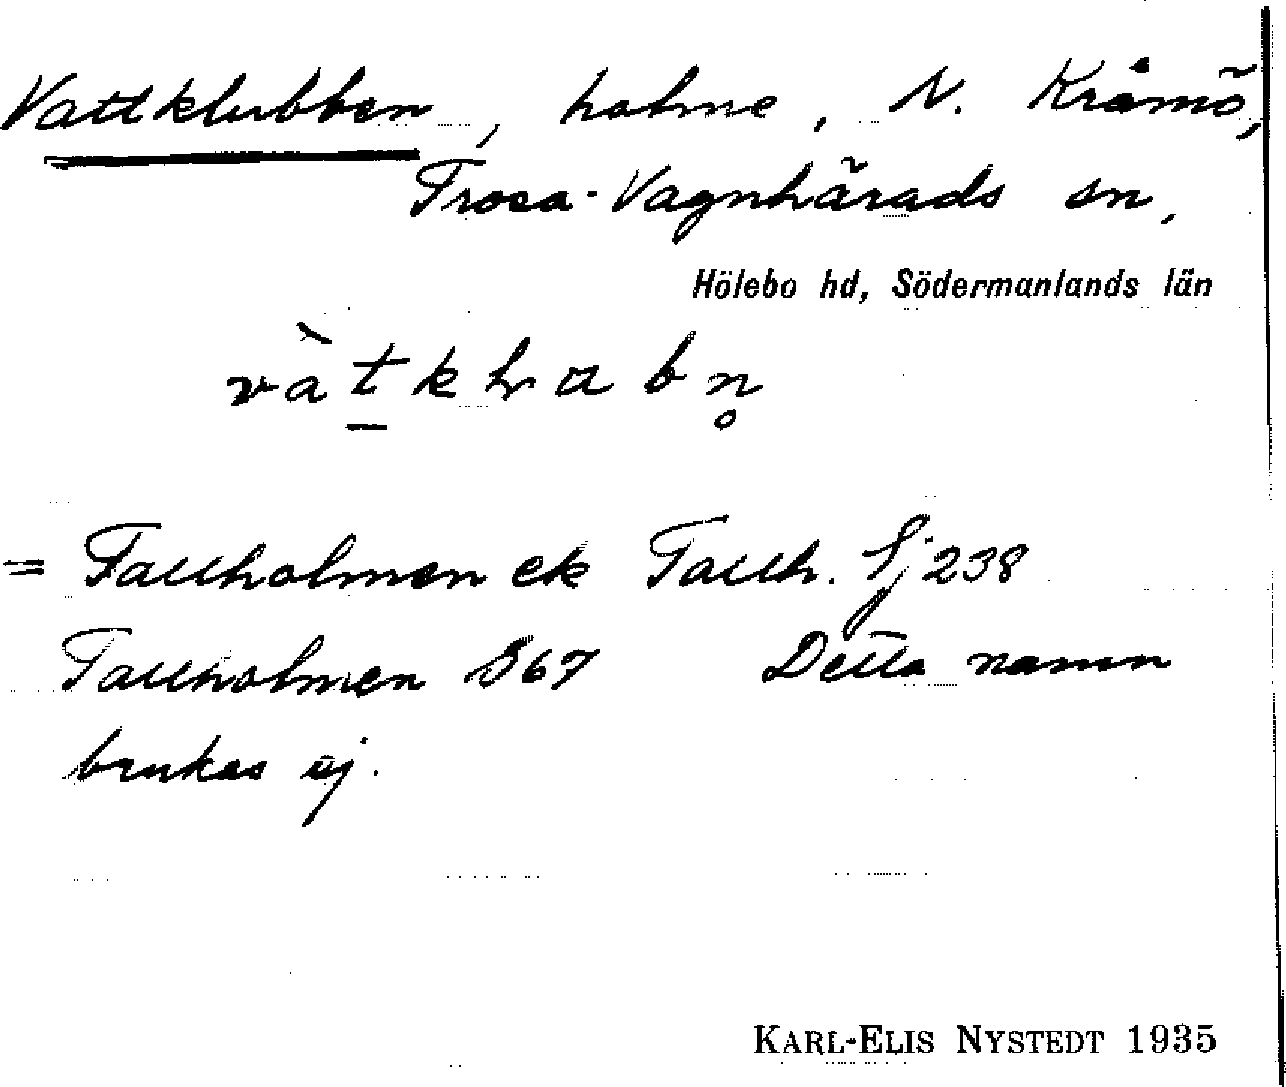 Vattklubben, holme, N. Kråmö,
Trosa-Vagnhärads sn,
Hölebo hd, Södermanlands län
= Tallholmen ek Tallh. Sj 238
Tallholmen S67 Detta namn
brukas ej.
KARL-ELIS NYSTEDT 1935